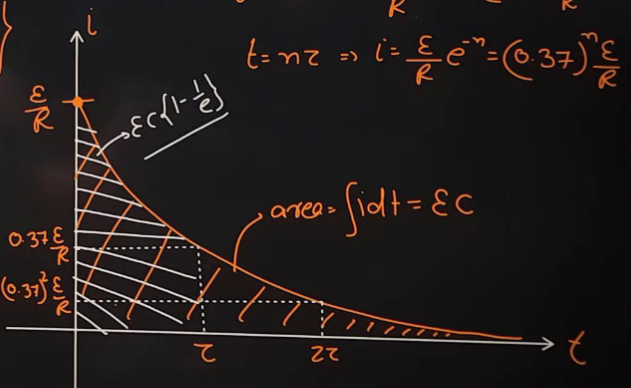 i
t = nτ ⇒ i = ℰ/R e^-n = (0.37)^n ℰ/R
ℰ/R
ℰC{1-1/e}
area = ∫idt = ℰC
0.37ℰ/R
(0.37)²ℰ/R
τ
2τ
t